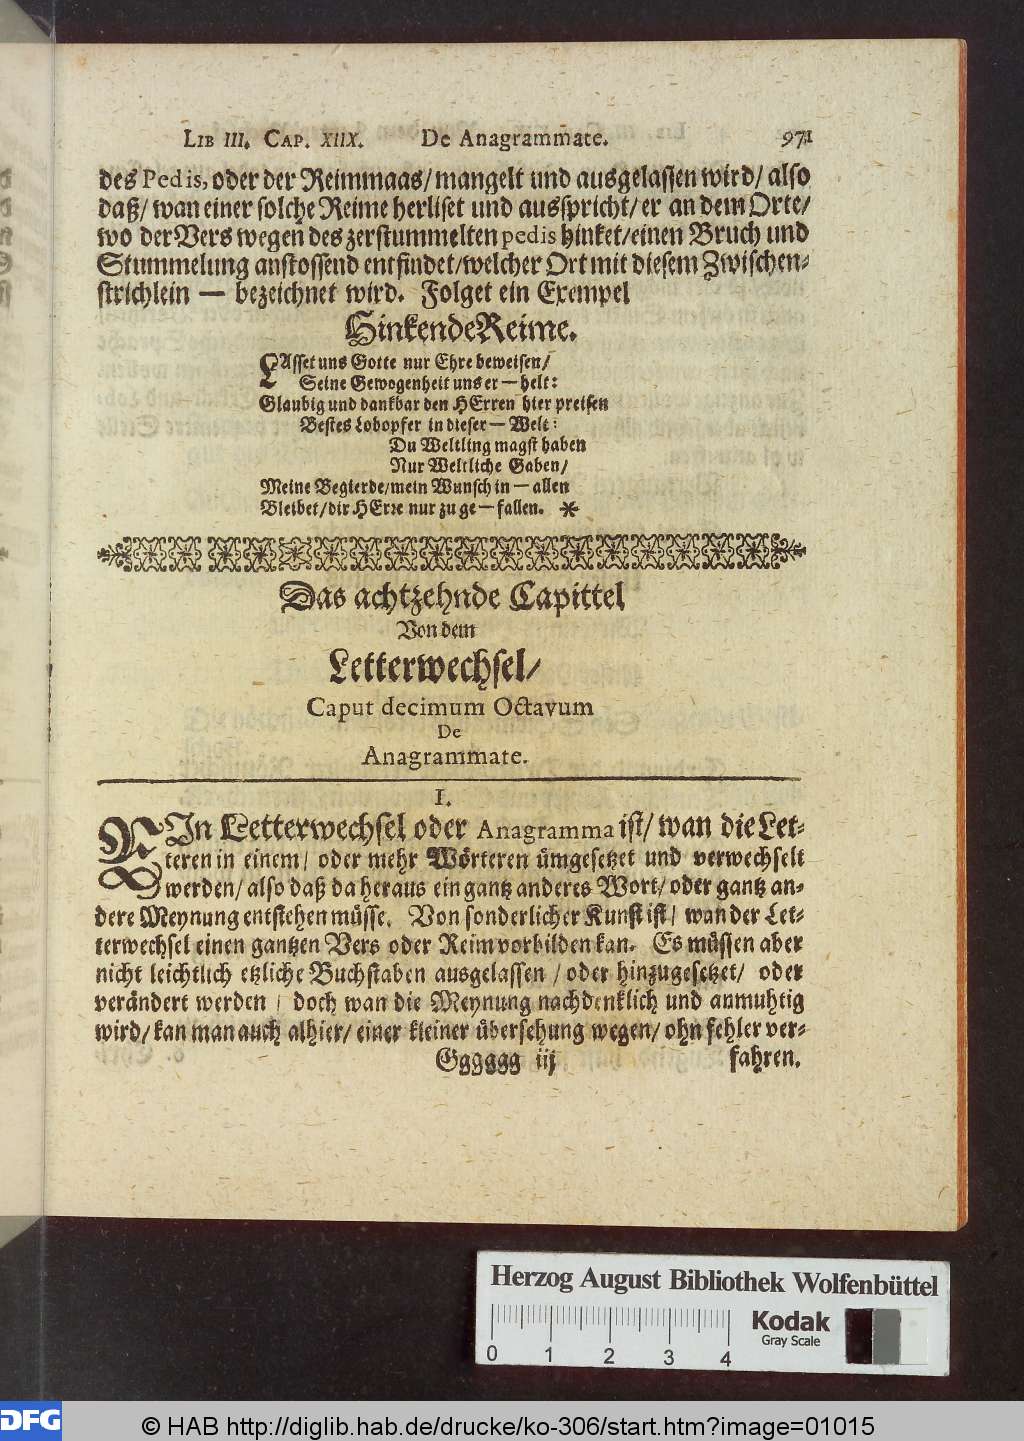 LIB III. CAP. XIIX. De Anagrammate. 971
des Pedis, oder der Reimmaas/ mangelt und ausgelassen wird/ also
daß/ wan einer solche Reime herliset und ausspricht/ er an dem Orte/
wo der Vers wegen des zerstummelten pedis hinket/ einen Bruch und
Stummelung anstossend entfindet/ welcher Ort mit diesem Zwischen-
strichlein — bezeichnet wird. Folget ein Exempel
Hinkende Reime.
LAsset uns Gotte nur Ehre beweisen/
Seine Gewogenheit uns er — helt:
Glaubig und dankbar den HErren hier preisen
Bestes Lobopfer in dieser — Welt:
Du Weltling magst haben
Nur Weltliche Gaben/
Meine Begierde/ mein Wunsch in — allen
Bleibet/ dir HErre nur zu ge — fallen. *
Das achtzehnde Capittel
Von dem
Letterwechsel/
Caput decimum Octavum
De
Anagrammate.
I.
EIn Letterwechsel oder Anagramma ist/ wan die Let-
teren in einem/ oder mehr Wörteren ümgesetzet und verwechselt
werden/ also daß daheraus ein gantz anderes Wort/ oder gantz an-
dere Meynung entstehen müsse. Von sonderlicher Kunst ist/ wan der Let-
terwechsel einen gantzen Vers oder Reim vorbilden kan. Es müssen aber
nicht leichtlich etzliche Buchstaben ausgelassen/ oder hinzugesetzet/ oder
verändert werden/ doch wan die Meynung nachdenklich und anmuhtig
wird/ kan man auch alhier/ einer kleiner übersehung wegen/ ohn fehler ver-
Gggggg iij fahren.
Herzog August Bibliothek Wolfenbüttel
Kodak
Gray Scale
0 1 2 3 4
DFG © HAB http://diglib.hab.de/drucke/ko-306/start.htm?image=01015